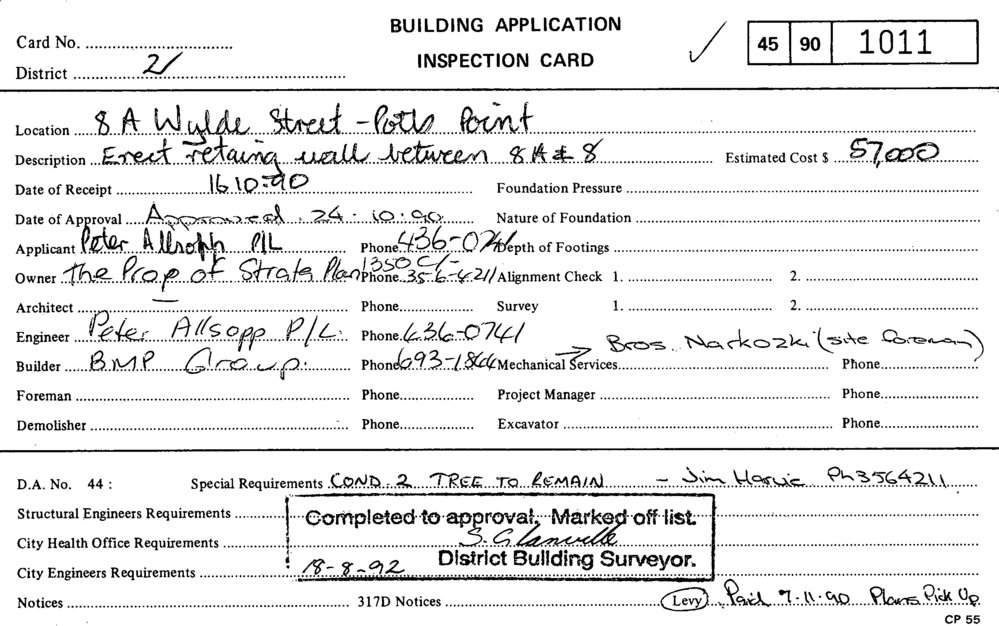 BUILDING APPLICATION
INSPECTION CARD
Card No.
District 2
45 90 1011
Location 8A Wylde Street - Potts Point
Description Erect retaing wall between 8A & 8 Estimated Cost $ 57,000
Date of Receipt 16 10.90 Foundation Pressure
Date of Approval Approved. 24.10.90. Nature of Foundation
Applicant Peter Allsopp P/L Phone 436-0741 Depth of Footings
Owner The Prop of Strata Plan 1350 C/- Phone 356-4211 Alignment Check 1. 2.
Architect Phone Survey 1. 2.
Engineer Peter Allsopp P/L. Phone 436-0741
Builder BMP Group. Phone 693-1844 → Bros. Narkozki (site foreman)
Mechanical Services Phone
Foreman Phone Project Manager Phone
Demolisher Phone Excavator Phone
D.A. No. 44 : Special Requirements COND. 2 TREE TO REMAIN - Jim Ph 3564211
Structural Engineers Requirements
City Health Office Requirements
City Engineers Requirements
Completed to approval. Marked off list.
S. Glanville
18-8-92 District Building Surveyor.
Notices 317D Notices Levy Paid 7.11.90 Plans Pick Up
CP 55